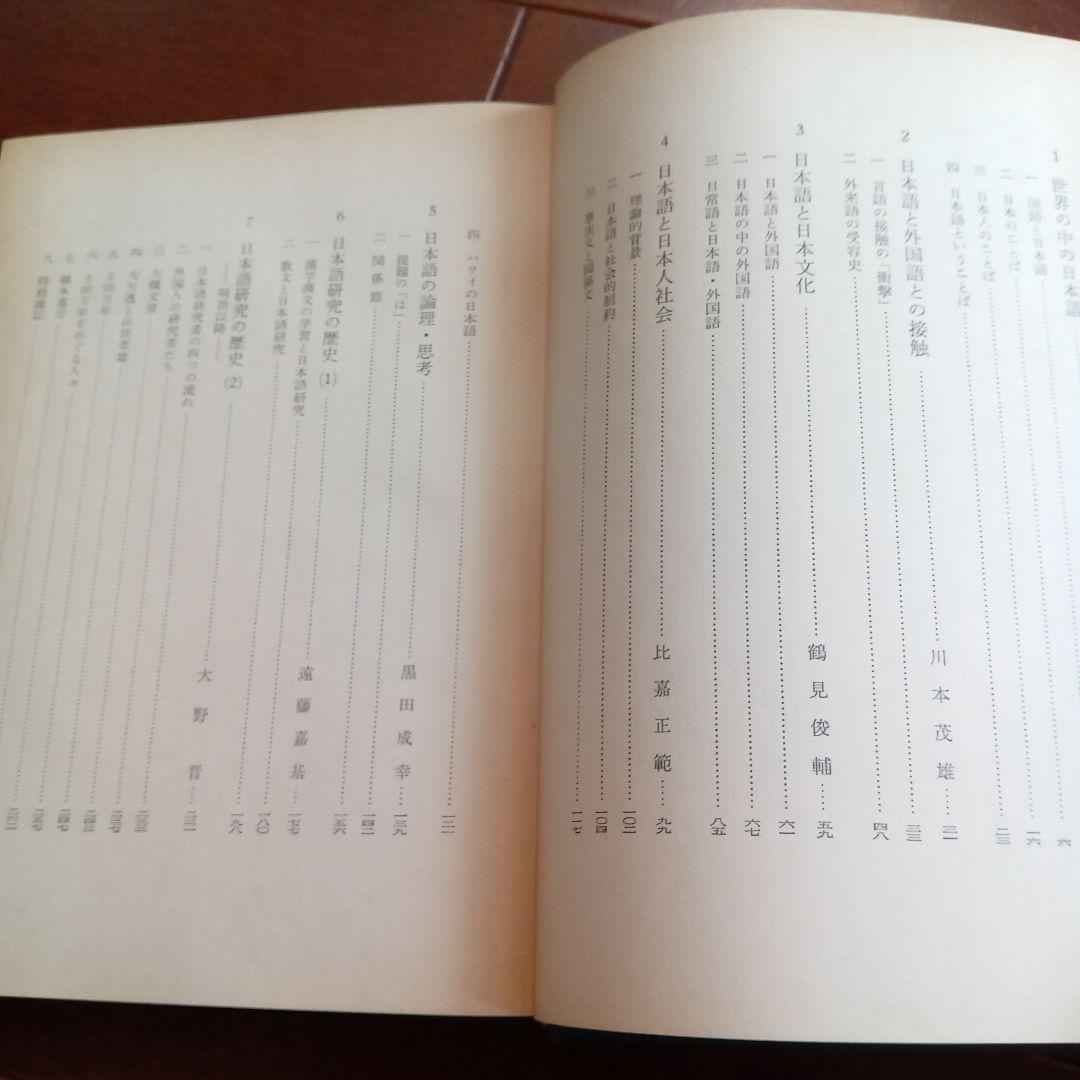 1 世界の中の日本語
一 国語と日本語……六
二 日本のことば……一六
三 日本人のことば……二三
四 日本語ということば
2 日本語と外国語との接触……川本茂雄……三一
一 言語の接触の「衝撃」……三三
二 外来語の受容史……四八
3 日本語と日本文化……鶴見俊輔……五九
一 日本語と外国語……六一
二 日本語の中の外国語……六七
三 日常語と日本語・外国語……八五
4 日本語と日本人社会……比嘉正範……九九
一 理論的背景……一〇二
二 日本語と社会的制約……一〇四
三 事実文と関係文……一一七
四 ハワイの日本語……一二一
5 日本語の論理・思考……黒田成幸……一三九
一 提題の「は」……一四二
二 関係節……一五六
6 日本語研究の歴史(1)……遠藤嘉基……一七七
一 漢字漢文の学習と日本語研究……一八〇
二 歌文と日本語研究……一九六
7 日本語研究の歴史(2)
――明治以降――……大野晋……二三一
一 日本語研究者の四つの流れ
二 外国人の研究者たち
三 大槻文彦
四 大矢透と山田孝雄
五 上田万年
六 上田万年をめぐる人々
七 橋本進吉
八 時枝誠記